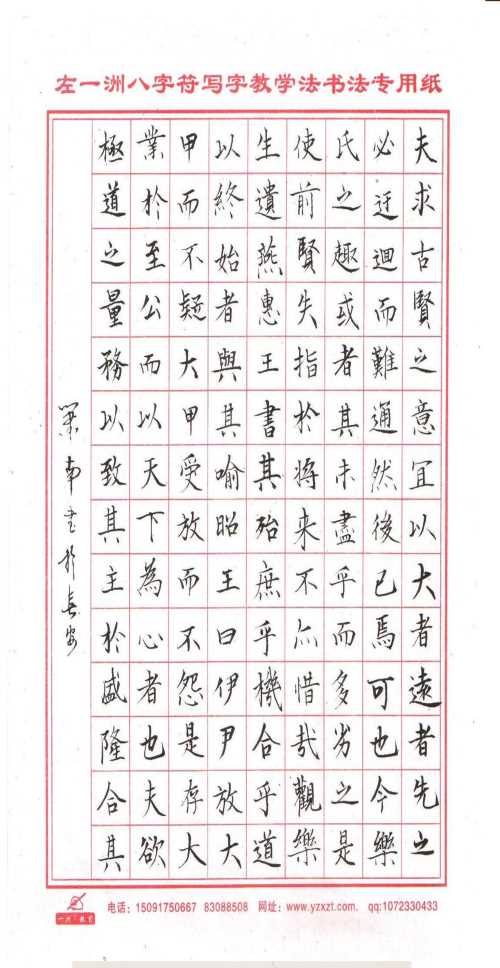 左一洲八字符写字教学法书法专用纸
夫求古賢之意宜以大者遠者先之
必迂迴而難通然後已焉可也今樂
氏之趣或者其未盡乎而多劣之是
使前賢失指於將來不亦惜哉觀樂
生遺燕惠王書其殆庶乎機合乎道
以終始者與其喻昭王曰伊尹放大
甲而不疑大甲受放而不怨是存大
業於至公而以天下為心者也夫欲
極道之量務以致其主於盛隆合其
南书於長安
教育
电话：15091750667 83088508 网址：www.yzxzt.com. qq:1072330433